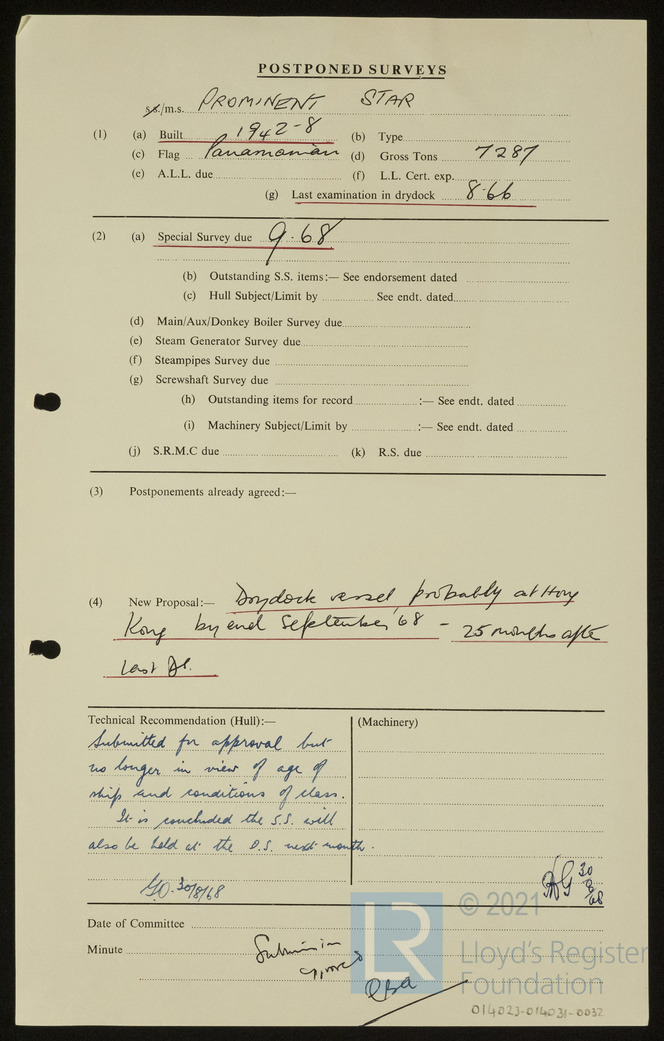 POSTPONED SURVEYS
s.s./m.s. PROMINENT STAR
(1) (a) Built 1942-8 (b) Type
(c) Flag Panamanian (d) Gross Tons 7287
(e) A.L.L. due (f) L.L. Cert. exp.
(g) Last examination in drydock 8.66
(2) (a) Special Survey due 9.68
(b) Outstanding S.S. items:— See endorsement dated
(c) Hull Subject/Limit by See endt. dated
(d) Main/Aux/Donkey Boiler Survey due
(e) Steam Generator Survey due
(f) Steampipes Survey due
(g) Screwshaft Survey due
(h) Outstanding items for record :— See endt. dated
(i) Machinery Subject/Limit by :— See endt. dated
(j) S.R.M.C due (k) R.S. due
(3) Postponements already agreed:—
(4) New Proposal:— Drydock vessel, probably at Hong
Kong by end September '68 - 25 months after
last DD.
Technical Recommendation (Hull):— (Machinery)
Submitted for approval but
no longer in view of age of
ship and conditions of class.
It is concluded the S.S. will
also be held at the D.S. next month.
30/8/68
30
8
68
Date of Committee
Minute Submission
approved
© 2021
LR
Lloyd's Register
Foundation
014023-014031-0032